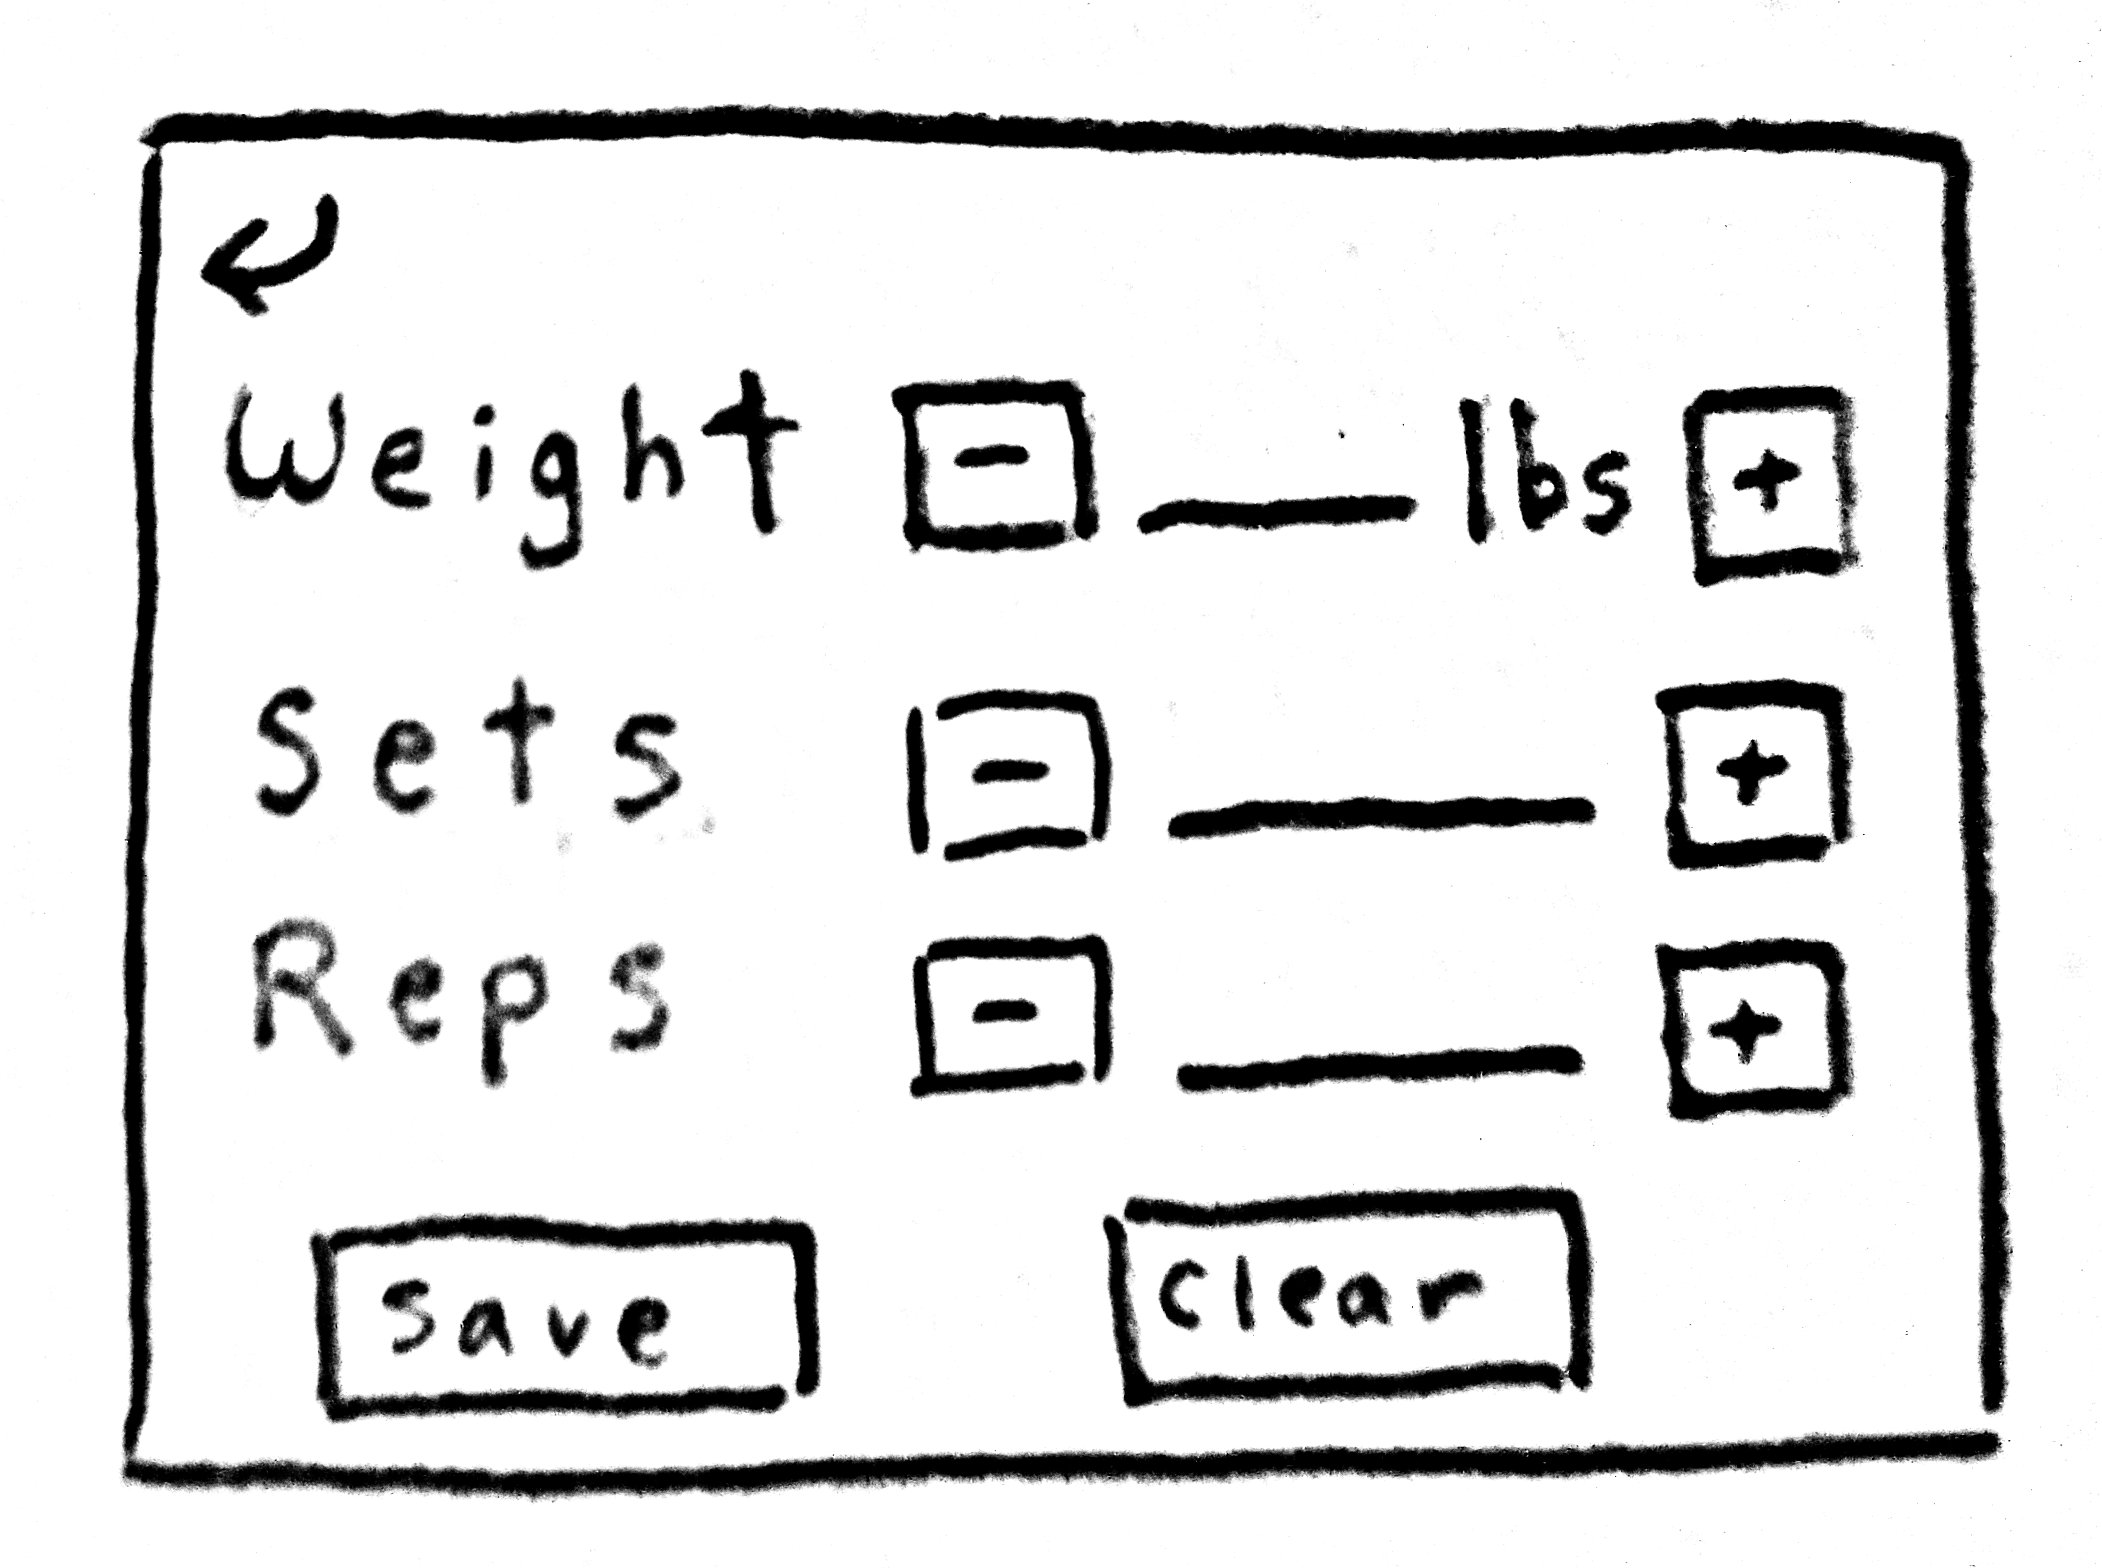 Weight - ___ lbs +
Sets - ___ +
Reps - ___ +
Save clear